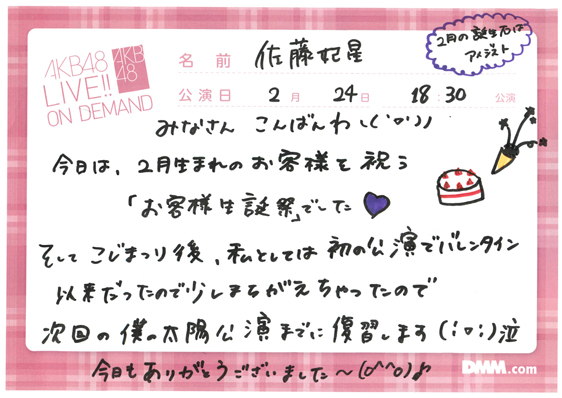 AKB48
LIVE!!
ON DEMAND
AKB
48
名前 佐藤妃星
2月の誕生石は
アメジスト
公演日 2月 24日 18:30 公演
みなさん こんばんわ\(('ㅇ'))
今日は、2月生まれのお客様を祝う
「お客様生誕祭」でした
そして こじまつり後、私としては初の公演でバレンタイン
以来だったので少しまちがえちゃったので
次回の僕の太陽公演までに復習します(;o;)泣
今日もありがとうございました〜(o^^o)♪
DMM.com